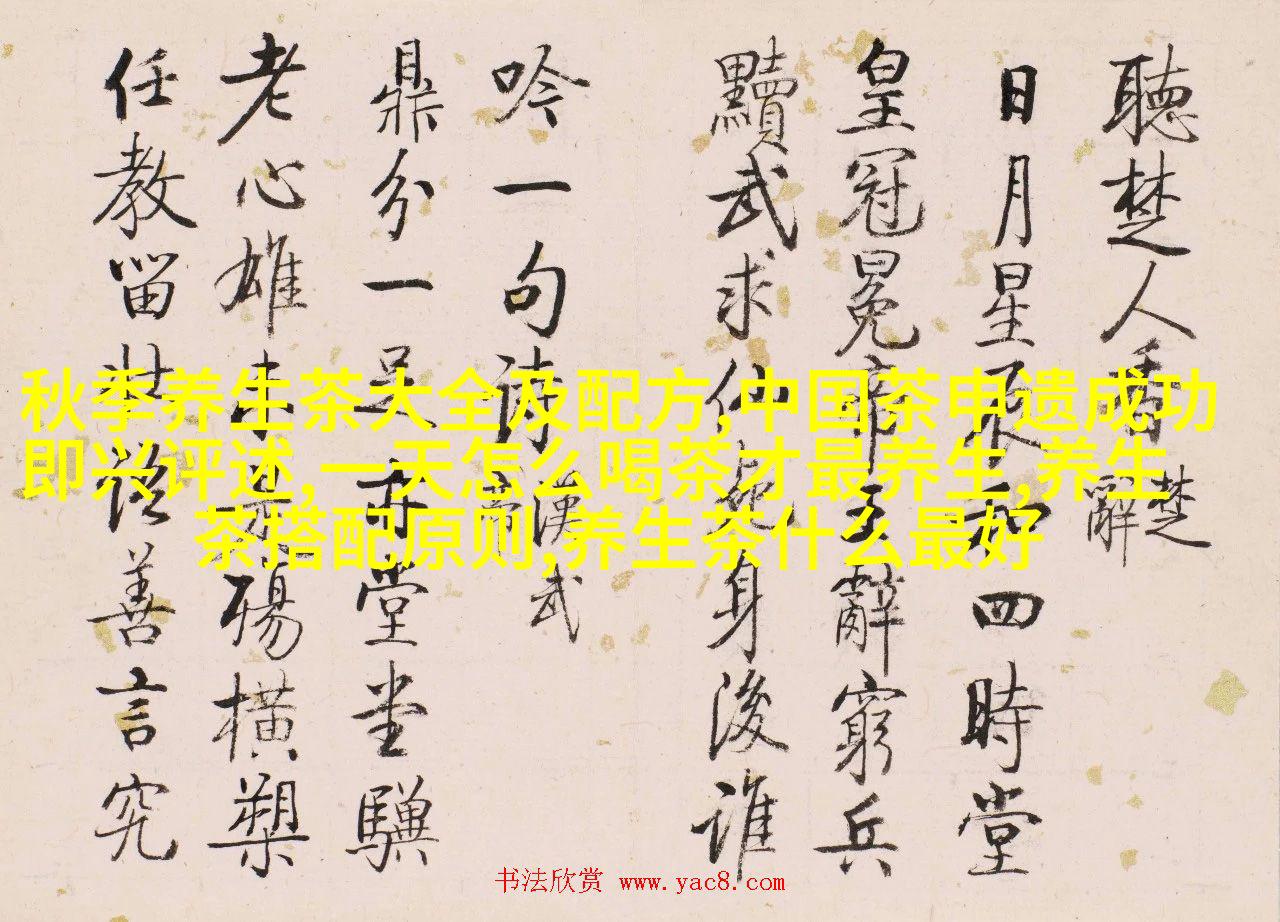 聽楚人看楚辭
日月星辰和四時堂
皇冠冕帝王辭窮兵
黷武求仙身後誰
吟一句詩漢武
鼎分一亦堂堂驥
老心雄殤橫槊
任教留語善言究
秋季养生茶大全及配方,中国茶申遗成功
即兴评述,一天怎么喝茶才最养生,养生
茶搭配原则,养生茶什么最好
书法欣赏 www.yac8.com